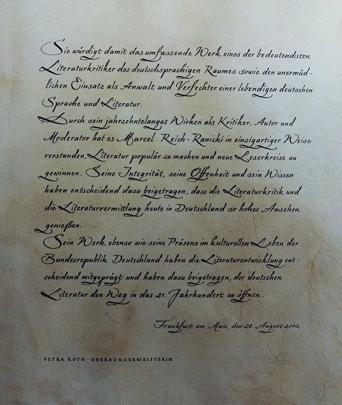 Sie würdigt damit das umfassende Werk eines der bedeutendsten
Literaturkritiker des deutschsprachigen Raumes sowie den unermüd-
lichen Einsatz als Anwalt und Verfechter einer lebendigen deutschen
Sprache und Literatur.
Durch sein jahrzehntelanges Wirken als Kritiker, Autor und
Moderator hat es Marcel Reich-Ranicki in einzigartiger Weise
verstanden, Literatur populär zu machen und neue Leserkreise zu
gewinnen. Seine Integrität, seine Offenheit und sein Wissen
haben entscheidend dazu beigetragen, dass die Literaturkritik und
die Literaturvermittlung heute in Deutschland so hohes Ansehen
genießen.
Sein Werk ebenso wie seine Präsenz im kulturellen Leben der
Bundesrepublik Deutschland haben die Literaturentwicklung ent-
scheidend mitgeprägt und haben dazu beigetragen, der deutschen
Literatur den Weg in das 21. Jahrhundert zu öffnen.
Frankfurt am Main, den 28. August 2002
PETRA ROTH · OBERBÜRGERMEISTERIN